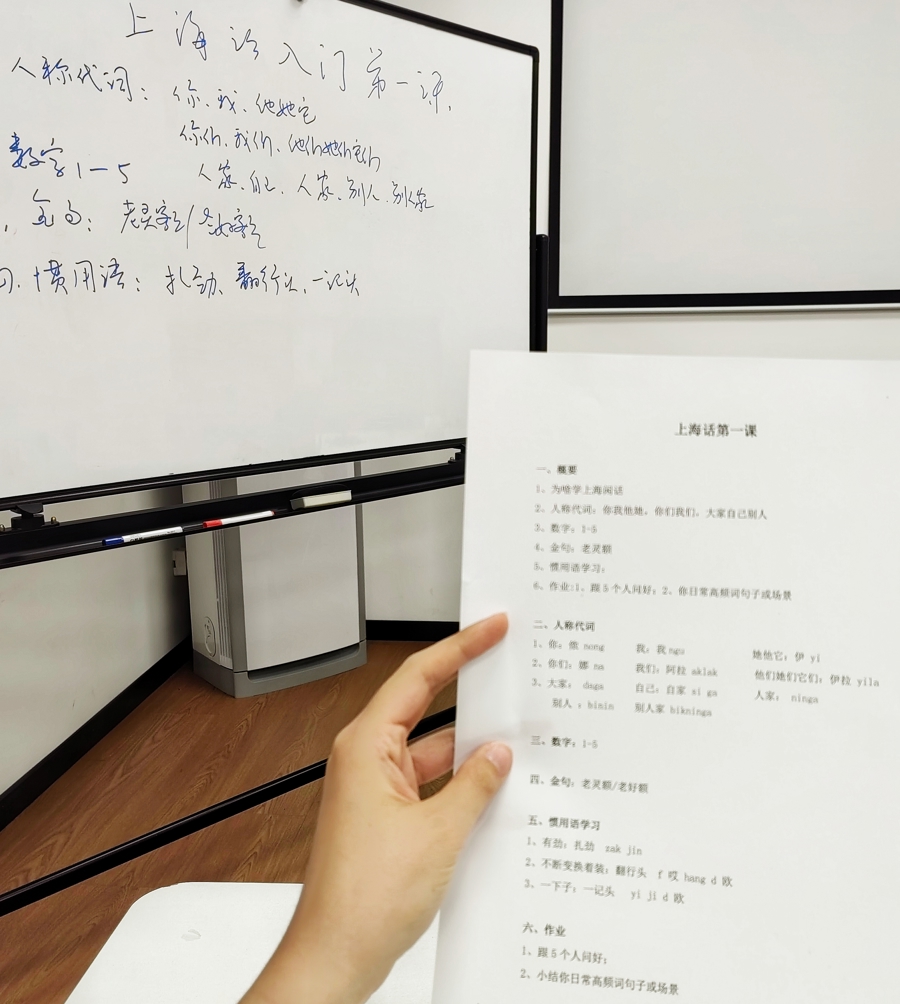 上海话入门第一课.
人称代词： 你、我、他她它
你们、我们、他们她们它们
人家、自己、人家、别人、别人家
数字 1—5
金句： 老灵额/老好额
惯用语： 扎劲、翻行头、一记头
上海话第一课
一、概要
1、为啥学上海闲话
2、人称代词：你我他她，你们我们，大家自己别人
3、数字：1-5
4、金句：老灵额
5、惯用语学习：
6、作业:1、跟5个人问好；2、你日常高频词句子或场景
二、人称代词
1、你：侬 nong 我：我 ngo 她他它：伊 yi
2、你们：娜 na 我们：阿拉 aklak 他们她们它们：伊拉 yila
3、大家： daga 自己：自家 xi ga 人家： ninga
别人 ：binin 别人家 bikninga
三、数字：1-5
四、金句：老灵额/老好额
五、惯用语学习
1、有劲：扎劲 zak jin
2、不断变换着装：翻行头 f 哎 hang d 欧
3、一下子：一记头 yi ji d 欧
六、作业
1、跟5个人问好；
2、小结你日常高频词句子或场景